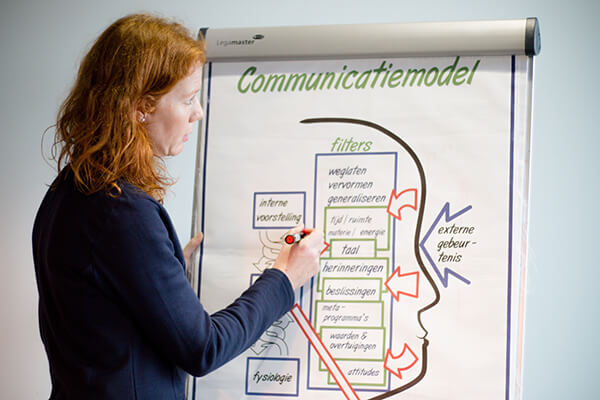 Legamaster
Communicatiemodel
filters
weglaten
vervormen
generaliseren
interne
voorstelling
tijd / ruimte
materie / energie
taal
herinneringen
beslissingen
meta-
programma's
waarden &
overtuigingen
attitudes
externe
gebeur-
tenis
fysiologie